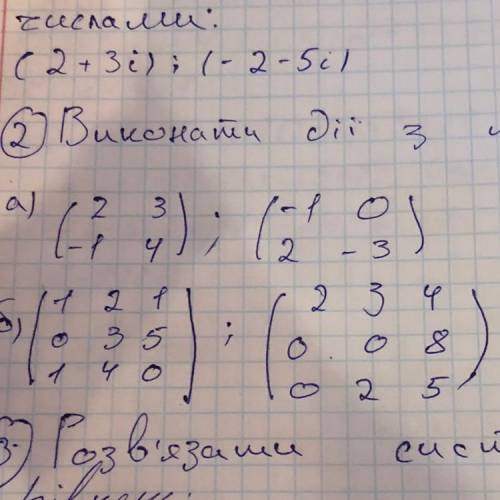 числами:
(2+3i); (-2-5i)
2 Виконати дії з
а) (2 3 -1 4); (-1 0 2 -3)
б) (1 2 1 0 3 5 1 4 0); (2 3 4 0 0 8 0 2 5)
3. Розв'язати сист